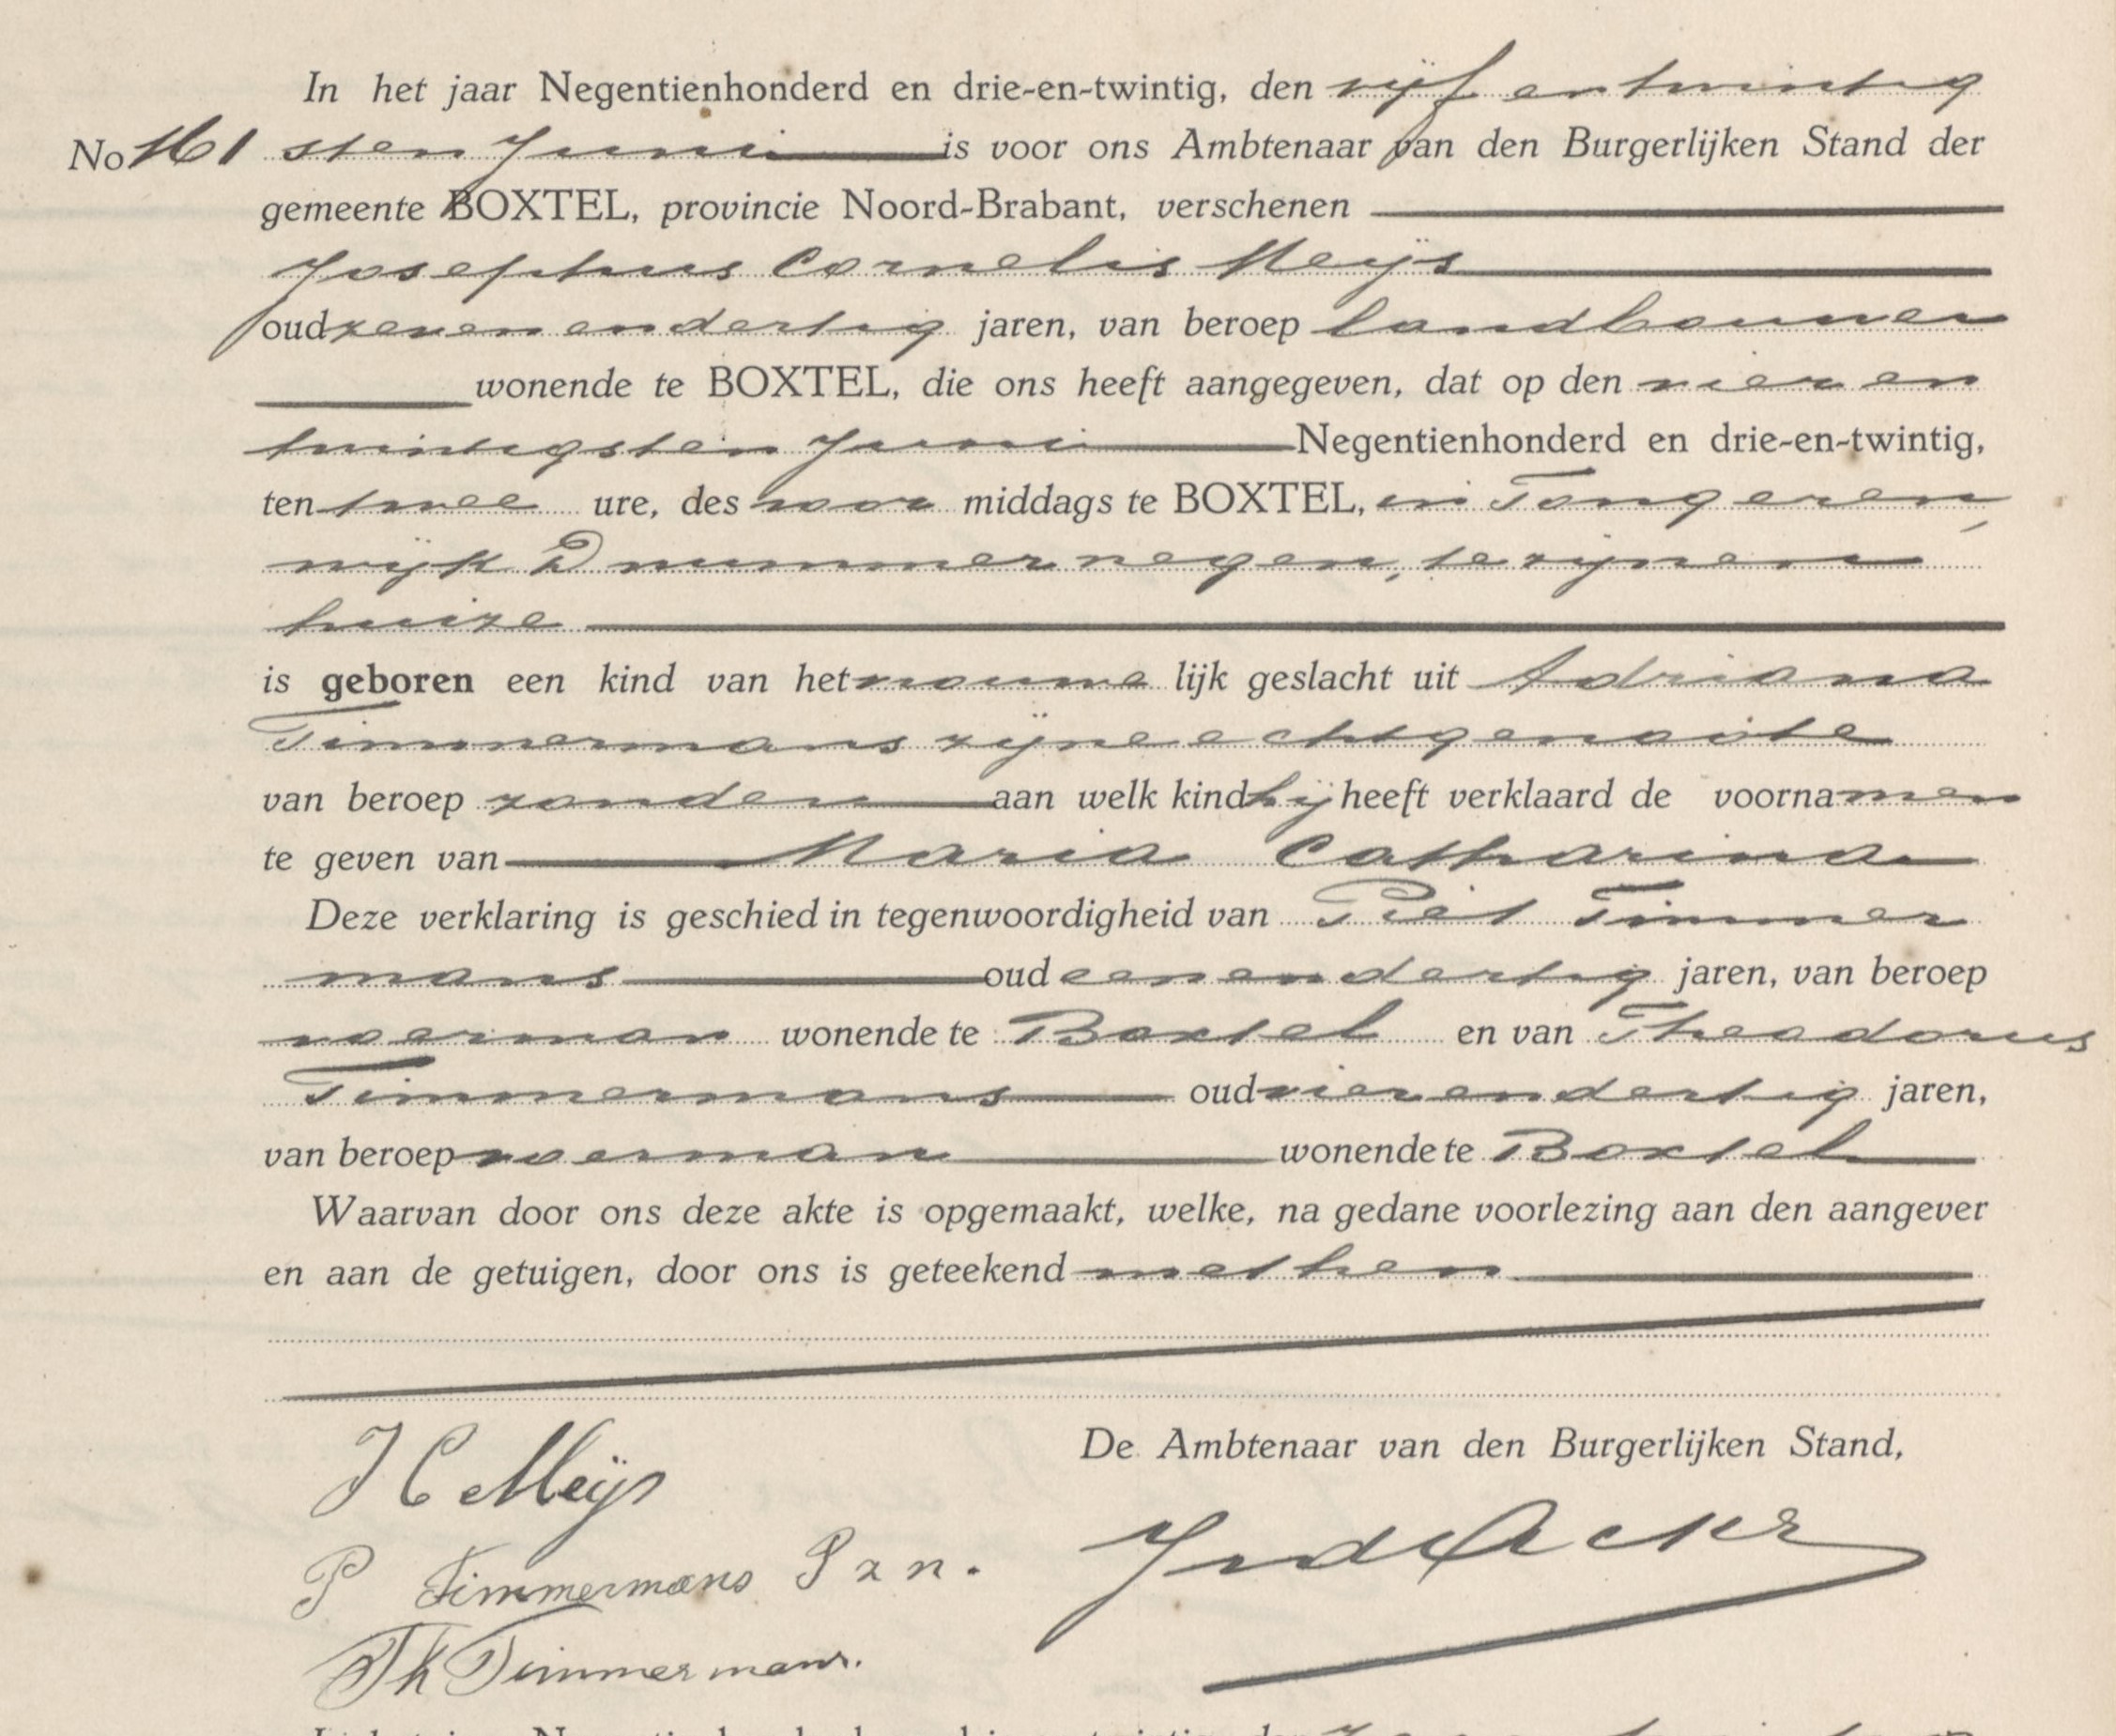 In het jaar Negentienhonderd en drie-en-twintig, den vijf en twintig
No 161 sten Juni is voor ons Ambtenaar van den Burgerlijken Stand der
gemeente BOXTEL, provincie Noord-Brabant, verschenen
Josephus Cornelis Meijs
oud zeven en dertig jaren, van beroep landbouwer
wonende te BOXTEL, die ons heeft aangegeven, dat op den vier en
twintigsten Juni Negentienhonderd en drie-en-twintig,
ten twee ure, des voor middags te BOXTEL, in Tongeren,
wijk D nummer negen, te zijnen
huize
is geboren een kind van het vrouwe lijk geslacht uit Adriana
Timmermans zijne echtgenoote
van beroep zonder aan welk kind hij heeft verklaard de voorna men
te geven van Maria Catharina
Deze verklaring is geschied in tegenwoordigheid van Piet Timmer
mans oud een en dertig jaren, van beroep
voerman wonende te Boxtel en van Theodorus
Timmermans oud vier en dertig jaren,
van beroep voerman wonende te Boxtel
Waarvan door ons deze akte is opgemaakt, welke, na gedane voorlezing aan den aangever
en aan de getuigen, door ons is geteekend met hen
De Ambtenaar van den Burgerlijken Stand,
J C Meijs
P Timmermans P z n.
Th Timmermans.